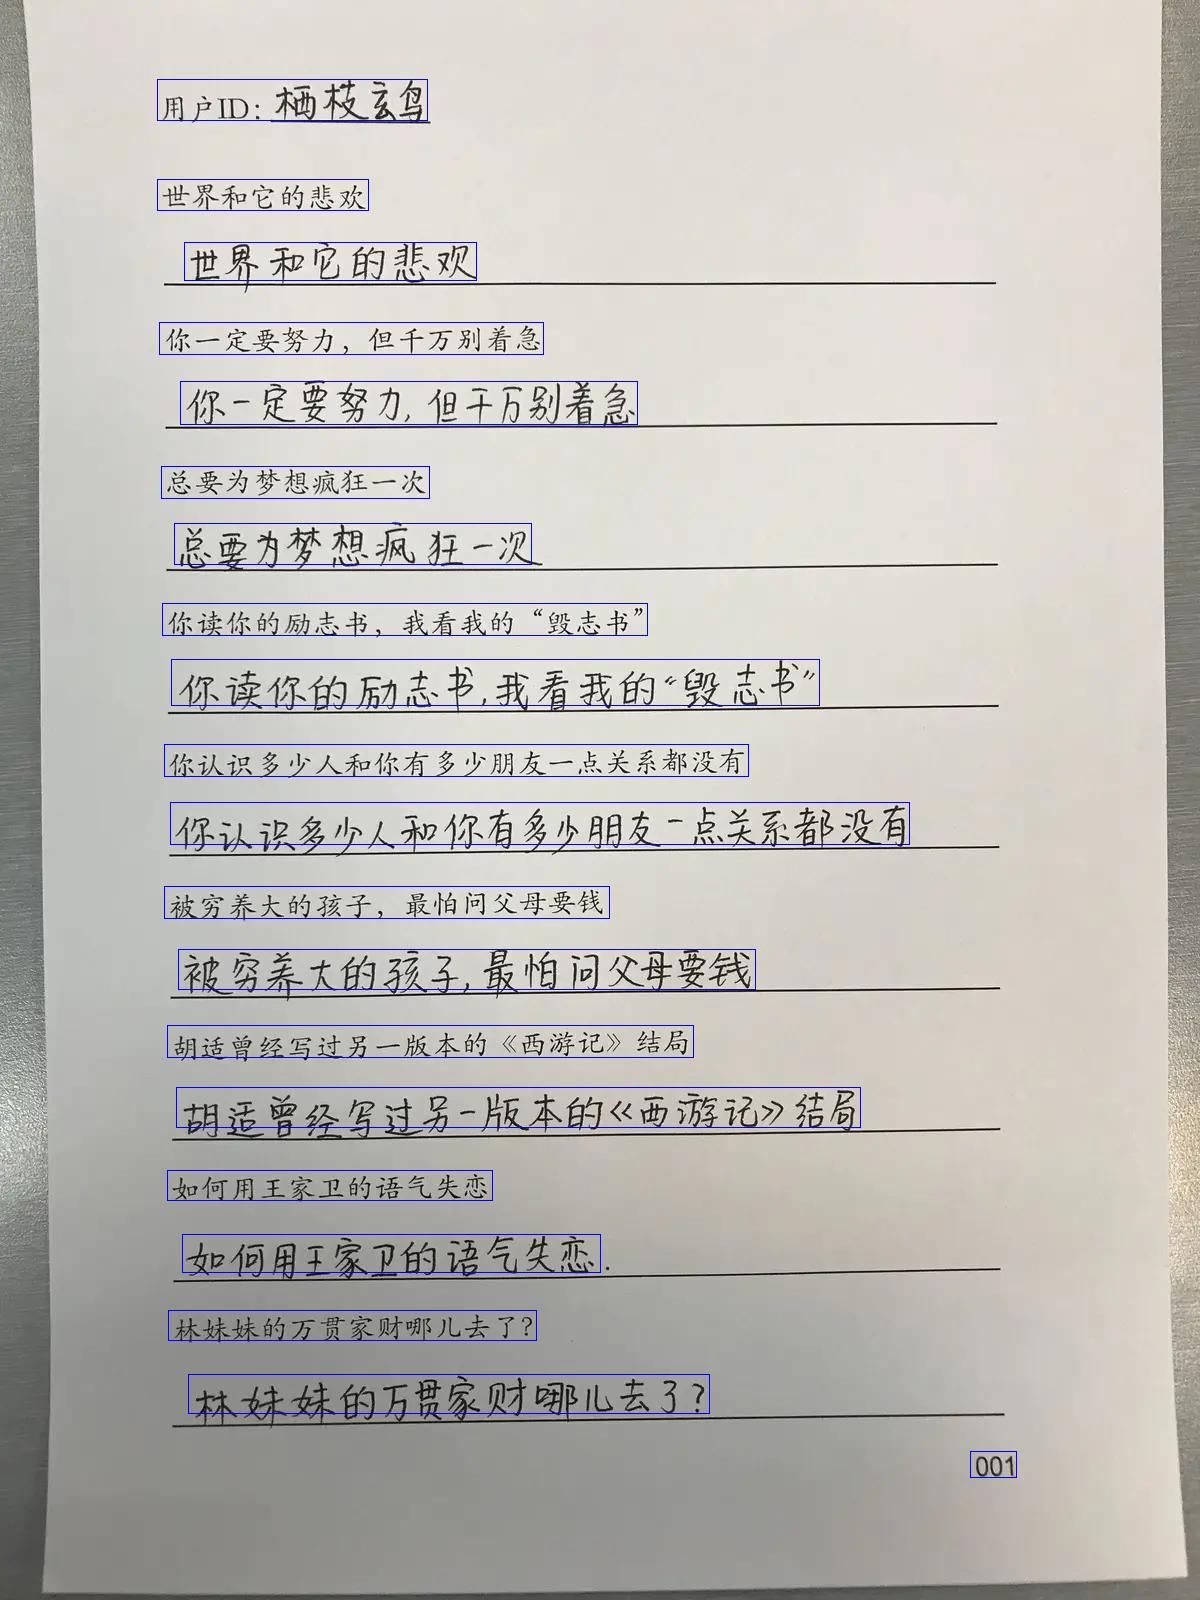 用户ID：栖枝玄鸟
世界和它的悲欢
世界和它的悲欢
你一定要努力，但千万别着急
你一定要努力，但千万别着急
总要为梦想疯狂一次
总要为梦想疯狂一次
你读你的励志书，我看我的“毁志书”
你读你的励志书，我看我的“毁志书”
你认识多少人和你有多少朋友一点关系都没有
你认识多少人和你有多少朋友一点关系都没有
被穷养大的孩子，最怕问父母要钱
被穷养大的孩子，最怕问父母要钱
胡适曾经写过另一版本的《西游记》结局
胡适曾经写过另一版本的《西游记》结局
如何用王家卫的语气失恋
如何用王家卫的语气失恋.
林妹妹的万贯家财哪儿去了?
林妹妹的万贯家财哪儿去了?
001